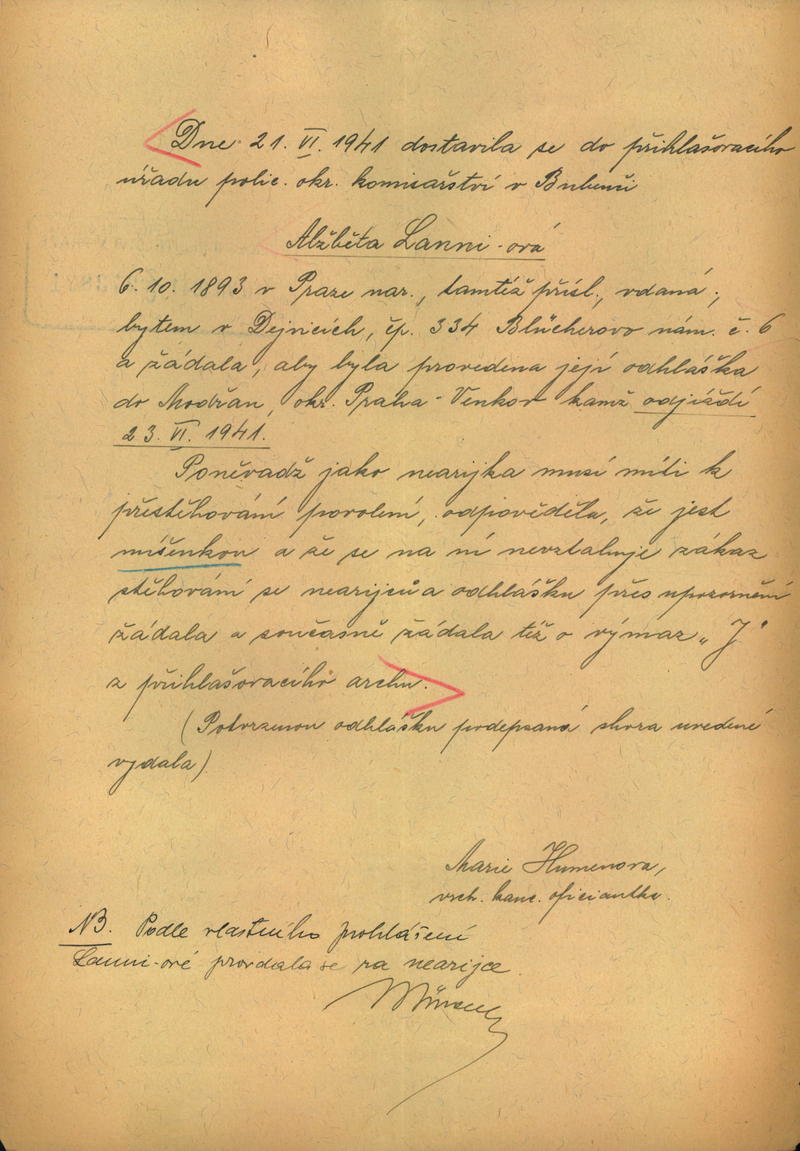 Dne 21. VI. 1941 dostavila se do přihlašovacího
úřadu polic. okr. komisařství v Bubenči
Alžběta Lanni-ová
6. 10. 1893 v Praze nar., tamtéž přísl., vdaná,
bytem v Dejvicích, čp. 334 Blücherovo nám. č. 6
a žádala, aby byla provedena její odhláška
do Modřan, okr. Praha-Venkov kamž odjíždí
23. VI. 1941.
Poněvadž jako nearijka musí míti k
přestěhování povolení, odpověděla, že jest
míšenkou a že se na ní nevztahuje zákaz
stěhování se nearijců a odhlášku přes upozornění
žádala a současně žádala též o výmaz „J"
z přihlašovacího archu.
(Potvrzenou odhlášku podepsaná shora uvedené
vydala)
Marie Humenova,
vrch. kanc. oficiantka.
NB. Podle vlastního prohlášení
Lanni-ové provdala se za nearijce.